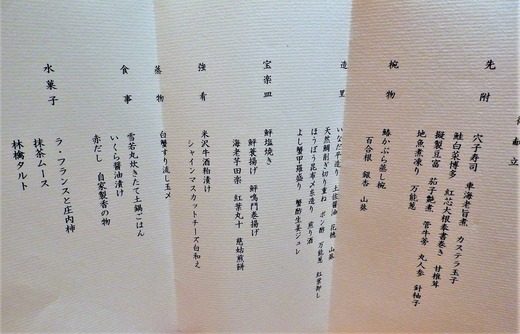 御献立
先附
穴子寿司 車海老旨煮 カステラ玉子
鮭白菜博多 紅芯大根奉書巻き 甘椎茸
擬製豆富 茄子艶煮 管牛蒡 丸人参 針柚子
地魚煮凍り 万能葱
椀物
鰆かぶら蒸し椀
百合根 銀杏 山葵
造里
いなだ平造り 土佐醤油 花穂 山葵
天然鯛削ぎ切り重ね ポン酢 万能葱 紅葉卸し
ほうぼう昆布〆糸造り 煎り酒
よし蟹甲羅盛り 蟹酢生姜ジュレ
宝楽皿
鮭塩焼き
鮮蓑揚げ 鮮鳴門巻揚げ
海老芋田楽 紅葉丸十 慈姑煎餅
強肴
米沢牛酒粕漬け
シャインマスカットチーズ白和え
蒸物
白蟹すり流し玉〆
食事
雪若丸炊きたて土鍋ごはん
いくら醤油漬け
赤だし 自家製香の物
水菓子
ラ・フランスと庄内柿
抹茶ムース
林檎タルト